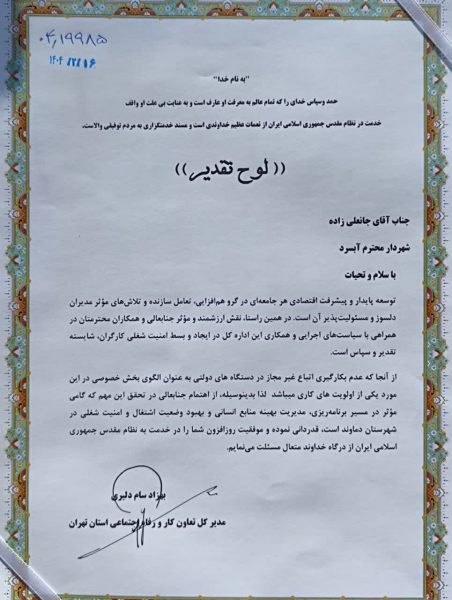 ۰۴٫۱۹۹۸۵
۱۴۰۴/۲/۱۶
"به نام خدا"
حمد وسپاس خدای را که تمام عالم به معرفت او عارف است و به عنایت بی علت او واقف
خدمت در نظام مقدس جمهوری اسلامی ایران از نعمات عظیم خداوندی است و مسند خدمتگزاری به مردم توفیقی والاست.
((لوح تقدیر))
جناب آقای جانعلی زاده
شهردار محترم آبسرد
با سلام و تحیات
توسعه پایدار و پیشرفت اقتصادی هر جامعه‌ای در گرو هم‌افزایی، تعامل سازنده و تلاش‌های مؤثر مدیران
دلسوز و مسئولیت‌پذیر آن است. در همین راستا، نقش ارزشمند و مؤثر جنابعالی و همکاران محترمتان در
همراهی با سیاست‌های اجرایی و همکاری این اداره کل در ایجاد و بسط امنیت شغلی کارگران، شایسته
تقدیر و سپاس است.
از آنجا که عدم بکارگیری اتباع غیر مجاز در دستگاه های دولتی به عنوان الگوی بخش خصوصی در این
مورد یکی از اولویت های کاری میباشد لذا بدینوسیله، از اهتمام جنابعالی در تحقق این مهم که گامی
مؤثر در مسیر برنامه‌ریزی، مدیریت بهینه منابع انسانی و بهبود وضعیت اشتغال و امنیت شغلی در
شهرستان دماوند است، قدردانی نموده و موفقیت روزافزون شما را در خدمت به نظام مقدس جمهوری
اسلامی ایران از درگاه خداوند متعال مسئلت می‌نمایم.
بهزاد سام دلیری
مدیر کل تعاون کار و رفاه اجتماعی استان تهران